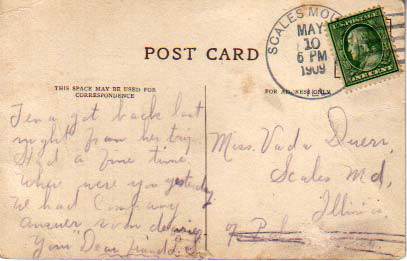 POST CARD
SCALES MOU
MAY
10
6 PM
1909
ILL
U.S. POSTAGE
ONE CENT
THIS SPACE MAY BE USED FOR
CORRESPONDENCE
FOR ADDRESS ONLY
Tena got back last
night from her trip
Had a fine time.
Where were you yesterday
We had Company
answer soon
Your "Dear friend"
Miss. Vada Duerr,
Scales Md,
Illinois.